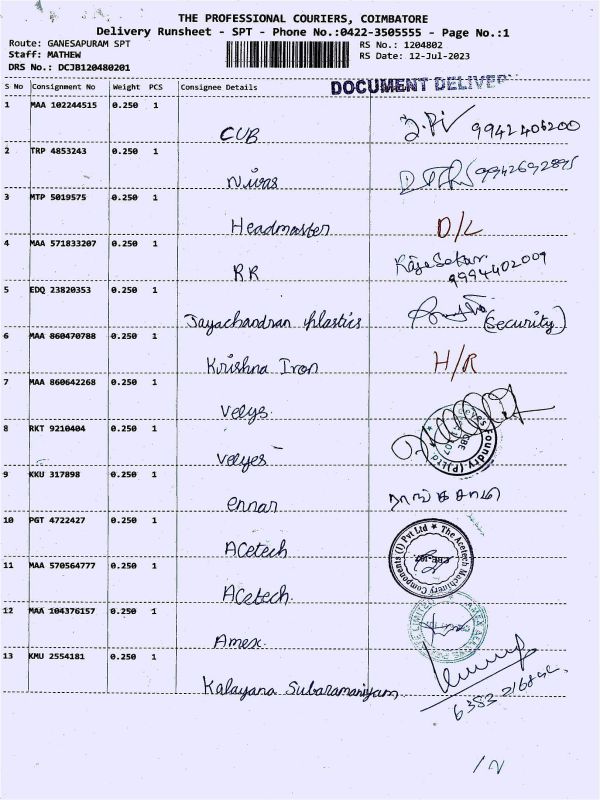 THE PROFESSIONAL COURIERS, COIMBATORE
Delivery Runsheet - SPT - Phone No.:0422-3505555 - Page No.:1
Route: GANESAPURAM SPT RS No.: 1204802
Staff: MATHEW RS Date: 12-Jul-2023
DRS No.: DCJB120480201
S No Consignment No Weight PCS Consignee Details DOCUMENT DELIVER
1 MAA 102244515 0.250 1
CUB 9942406200
2 TRP 4853243 0.250 1
Nivas 9942692895
3 MTP 5019575 0.250 1
Headmaster D/L
4 MAA 571833207 0.250 1
RR RajaSekar
9994402009
5 EDQ 23820353 0.250 1
Jayachandran Plastics (Security)
6 MAA 860470788 0.250 1
Krishna Iron H/R
7 MAA 860642268 0.250 1
Velys
8 RKT 9210404 0.250 1
Velyes Foundry.(P)Ltd
9 KKU 317898 0.250 1
ennar
10 PGT 4722427 0.250 1
ACetech The Acetech Machinery Components (I) Pvt Ltd
11 MAA 570564777 0.250 1
ACetech.
12 MAA 104376157 0.250 1
Amex.
13 KMU 2554181 0.250 1
Kalayana Subaramaniyam
6383